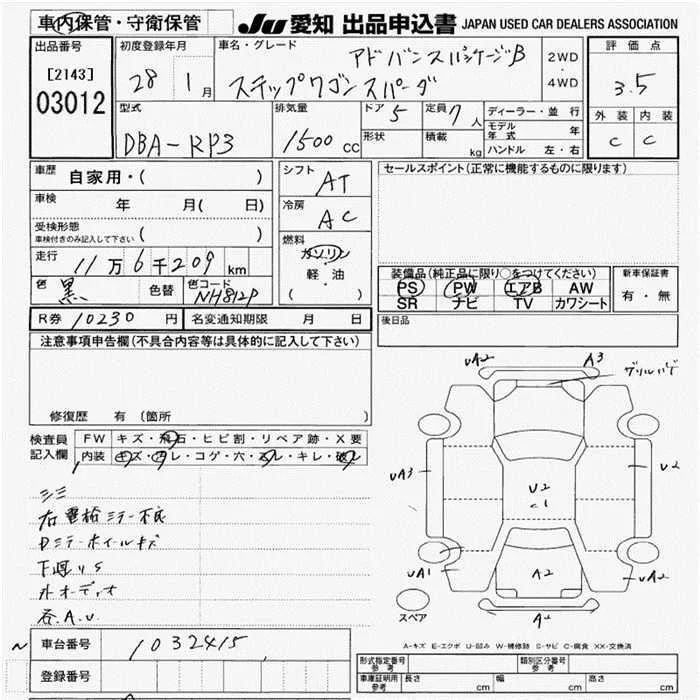 車内保管・守衛保管
JU 愛知 出品申込書 JAPAN USED CAR DEALERS ASSOCIATION
出品番号
[2143]
03012
初度登録年月
28 1月
車名・グレード
アドバンスパッケージB
ステップワゴンスパーダ
2WD
・
4WD
評価点
3.5
外装 内装
C C
型式
DBA-RP3
排気量
1500 cc
ドア 5
形状
定員 7人
積載 kg
ディーラー・並行
モデル年式 年
ハンドル 左・右
車歴 自家用・( )
車検 年 月( 日)
受検形態
車検付きのみ記入して下さい ( )
走行 11万6千209km
色 黒 色替 色コード NH812P
シフト AT
冷房 AC
燃料
ガソリン
軽・油
( )
セールスポイント(正常に機能するものに限ります)
装備品(純正品に限り○をつけてください)
PS PW エアB AW
SR ナビ TV カワシート
新車保証書
有・無
R券 10230 円 名変通知期限 月 日
後日品
注意事項申告欄(不具合内容等は具体的に記入して下さい)
修復歴 有(箇所 )
検査員記入欄
FW キズ・飛石・ヒビ割・リペア跡・X要
内装 キズ・汚レ・コゲ・穴・スレ・キレ・破レ
シミ
右電格ミラー不良
Dミラーホイールキズ
下廻りS
外オーディオ
各A.U
UA2 A3
グリルハゲ
UA3 U2
U2
C1
UA1 A2 UA2
スペア
A-キズ E-エクボ U-凹み W-補修跡 S-サビ C-腐食 XX-交換済
車台番号 1032415
登録番号
型式指定番号 参考
類別区分番号 参考
車庫証明用 参考 長さ cm 幅 cm 高さ cm